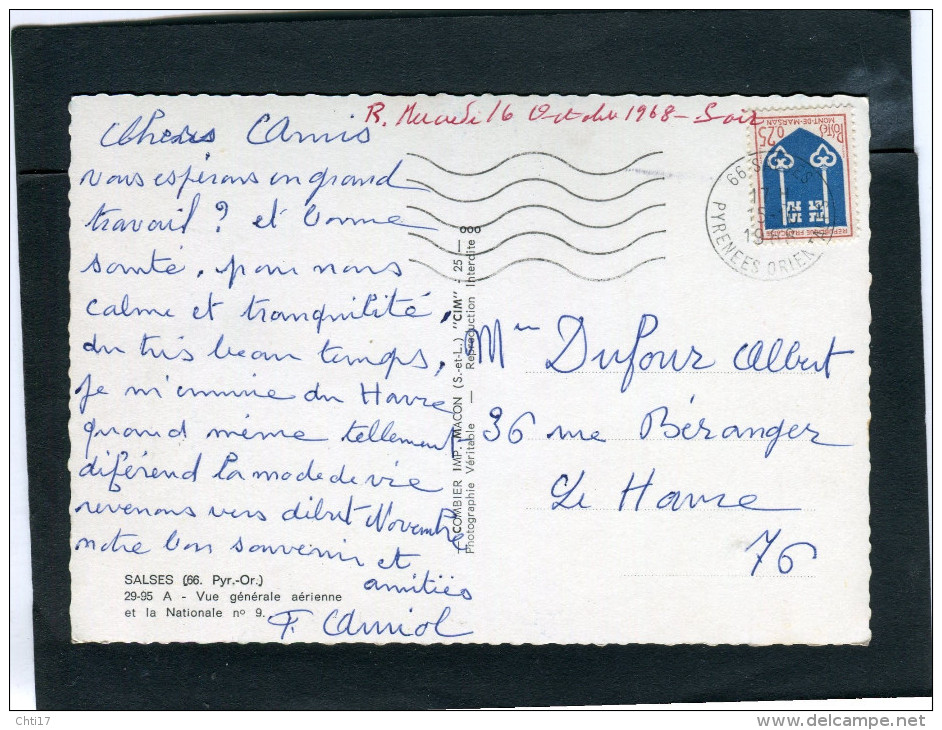 R. Mercredi 16 Octobre 1968 - Soir
Chers Amis
vous espérons en grand
travail ? et bonne
santé, pour nous
calme et tranquilité,
du très beau temps,
je m'ennuie du Havre
quand même tellement
diférend la mode de vie
revenons vers début Novembre
notre bon souvenir et
amitiés
F. Camiol
SALSES (66. Pyr.-Or.)
29-95 A - Vue générale aérienne
et la Nationale nº 9.
COMBIER IMP. MACON (S.-et-L.) "CIM" - 25 -
Photographie Véritable — Reproduction Interdite
Postes
0,25
MONT-DE-MARSAN
REPUBLIQUE FRANÇAISE
66
17 H
19
PYRENEES ORIEN
Mr Dufour Albert
36 rue Béranger
Le Havre
76
Chti17
www.delcampe.net